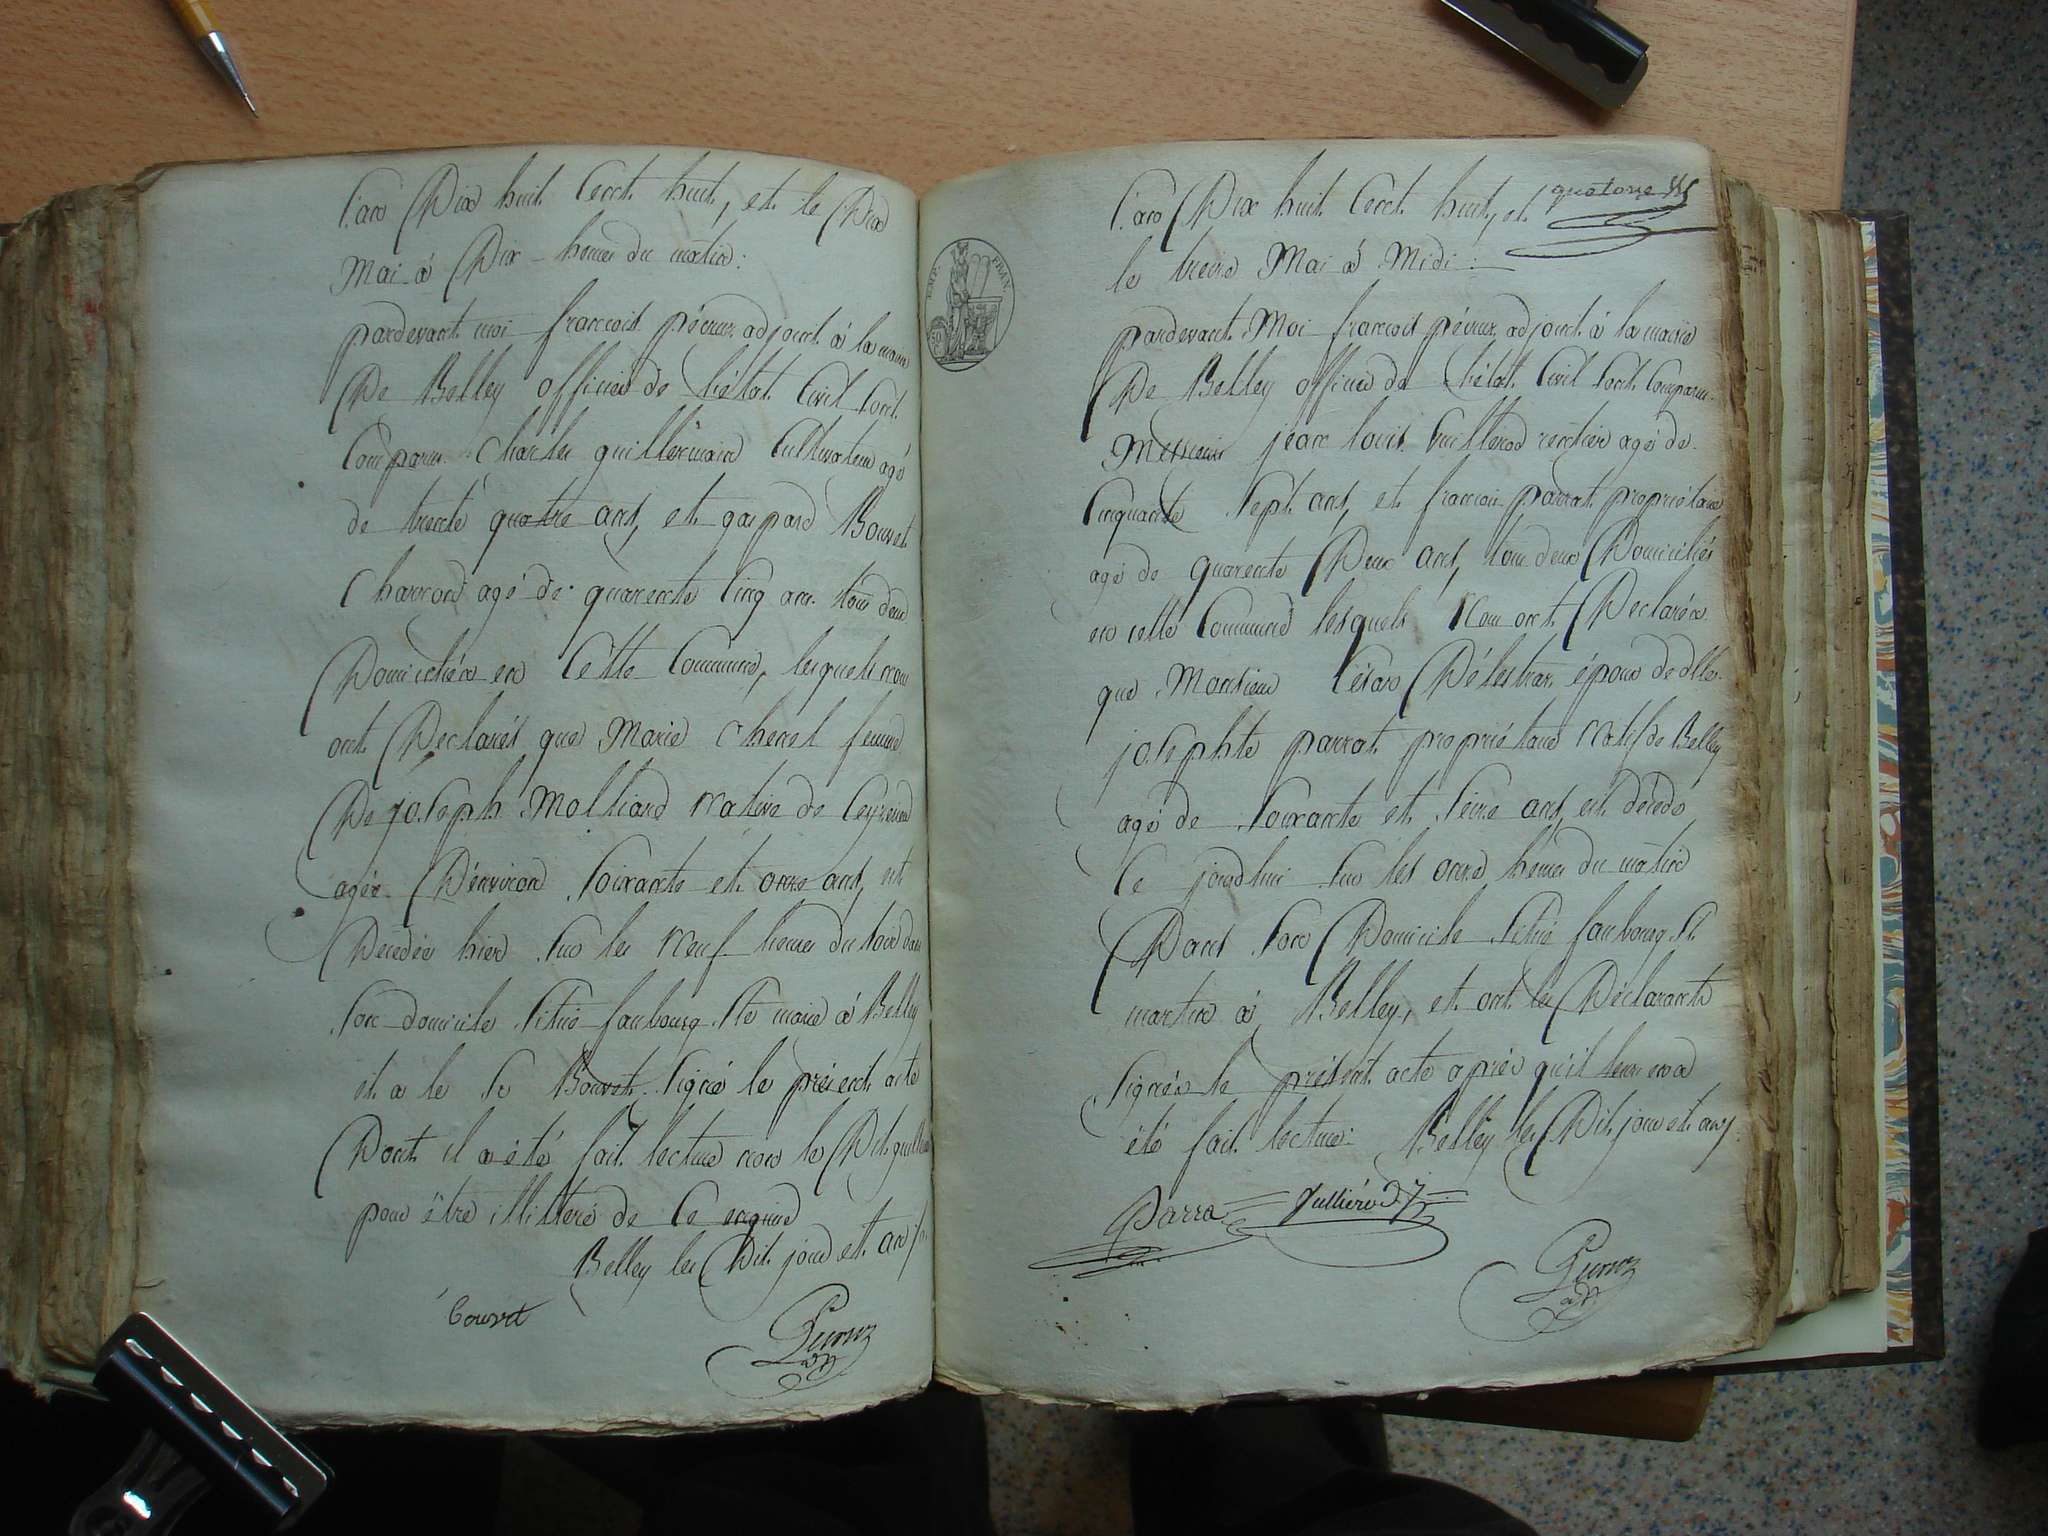 L'an Dix huit Cent huit, et le Dix
Mai à Dix heures du matin:
pardevant moi francois péreuz adjoint à la mairie
De Belley officier de l'état Civil Sont
Comparu Charles guillermain Cultivateur agé
de trente quatre ans, et gaspard Bouvet
Charron agé de quarente Cinq ans tous deux
Domiciliés en Cette Commune, lesquels nous
ont Declarés que Marie Chenel femme
De joseph Molliard Native de
agée D'environ Soixante et onze ans, est
Decedée hier Sur les Neuf heures du soir dans
Son domicile Situé faubourg Ste marie à Belley
et a le Sr Bouvet Signé le présent acte
Dont il a été fait lecture non le Dit
pour être illitteré de Ce enquis
Belley les Dit jour et an
bouvet
EMP. FRAN.
L'an Dix huit Cent huit, et
quatorze
le treize Mai à Midi:
pardevant Moi francois péreuz adjoint à la mairie
De Belley officier de l'état Civil Sont Comparu
Messieurs jean louis Cuillerod rentier agé de
Cinquante Sept ans, et francois parrat propriétaire
agé de quarente Deux ans, tous deux Domiciliés
en cette Commune lesquels Nous ont Declarés
que Monsieur César Délestraz époux de dlle
josephte parrat propriétaire Natif de Belley
agé de Soixante et Seize ans, est décédé
Ce jourd'hui Sur les onze heures du matin
Dans Son Domicile Situé faubourg St
martin à Belley, et ont les Déclarants
Signés le présent acte après qu'il leur en a
été fait lecture Belley les Dit jour et an
Parra